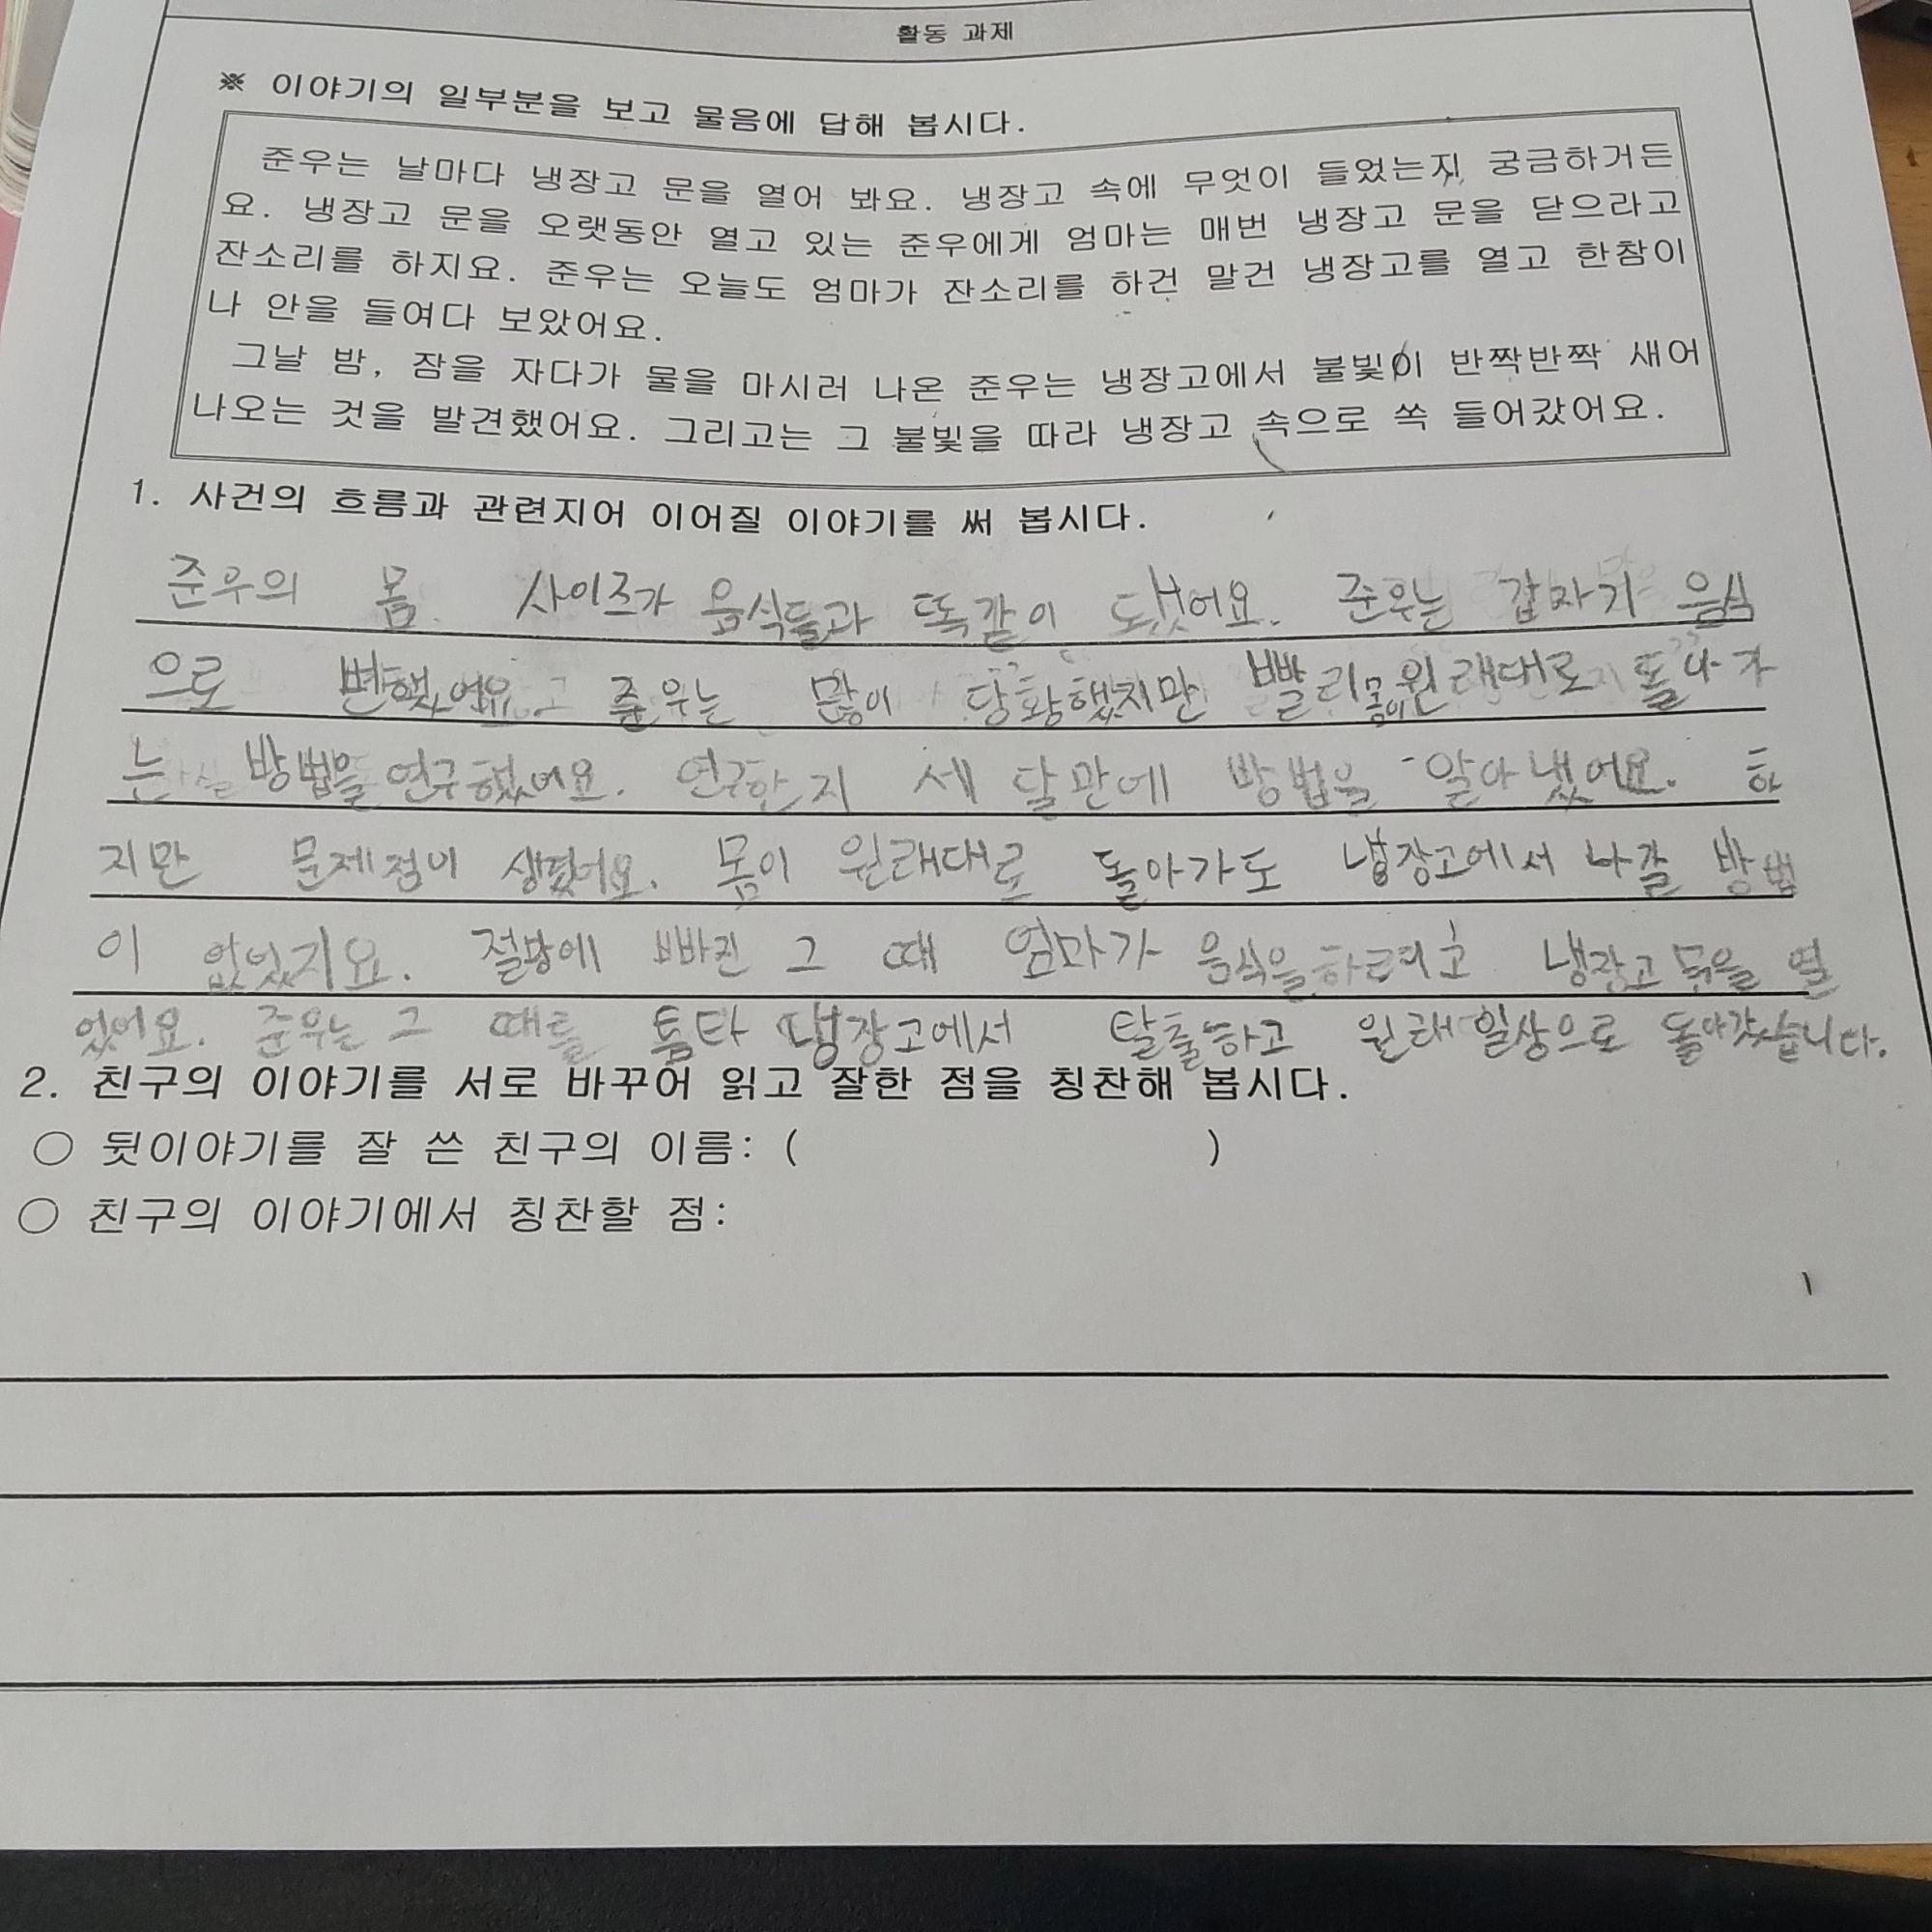 활동 과제
※ 이야기의 일부분을 보고 물음에 답해 봅시다.
준우는 날마다 냉장고 문을 열어 봐요. 냉장고 속에 무엇이 들었는지 궁금하거든
요. 냉장고 문을 오랫동안 열고 있는 준우에게 엄마는 매번 냉장고 문을 닫으라고
잔소리를 하지요. 준우는 오늘도 엄마가 잔소리를 하건 말건 냉장고를 열고 한참이
나 안을 들여다 보았어요.
그날 밤, 잠을 자다가 물을 마시러 나온 준우는 냉장고에서 불빛이 반짝반짝 새어
나오는 것을 발견했어요. 그리고는 그 불빛을 따라 냉장고 속으로 쏙 들어갔어요.
1. 사건의 흐름과 관련지어 이어질 이야기를 써 봅시다.
준우의 몸 사이즈가 음식들과 똑같이 됐어요. 준우는 갑자기 음식
으로 변했어요 준우는 많이 당황했지만 빨리 몸이 원래대로 돌아가
는 방법을 연구했어요. 연구한지 세 달만에 방법을 알아냈어요. 하
지만 문제점이 생겼어요. 몸이 원래대로 돌아가도 냉장고에서 나갈 방법
이 없었지요. 절망에 빠진 그 때 엄마가 음식을 하려고 냉장고 문을 열
었어요. 준우는 그 때를 틈타 냉장고에서 탈출하고 원래 일상으로 돌아갔습니다.
2. 친구의 이야기를 서로 바꾸어 읽고 잘한 점을 칭찬해 봅시다.
○ 뒷이야기를 잘 쓴 친구의 이름: ( )
○ 친구의 이야기에서 칭찬할 점: